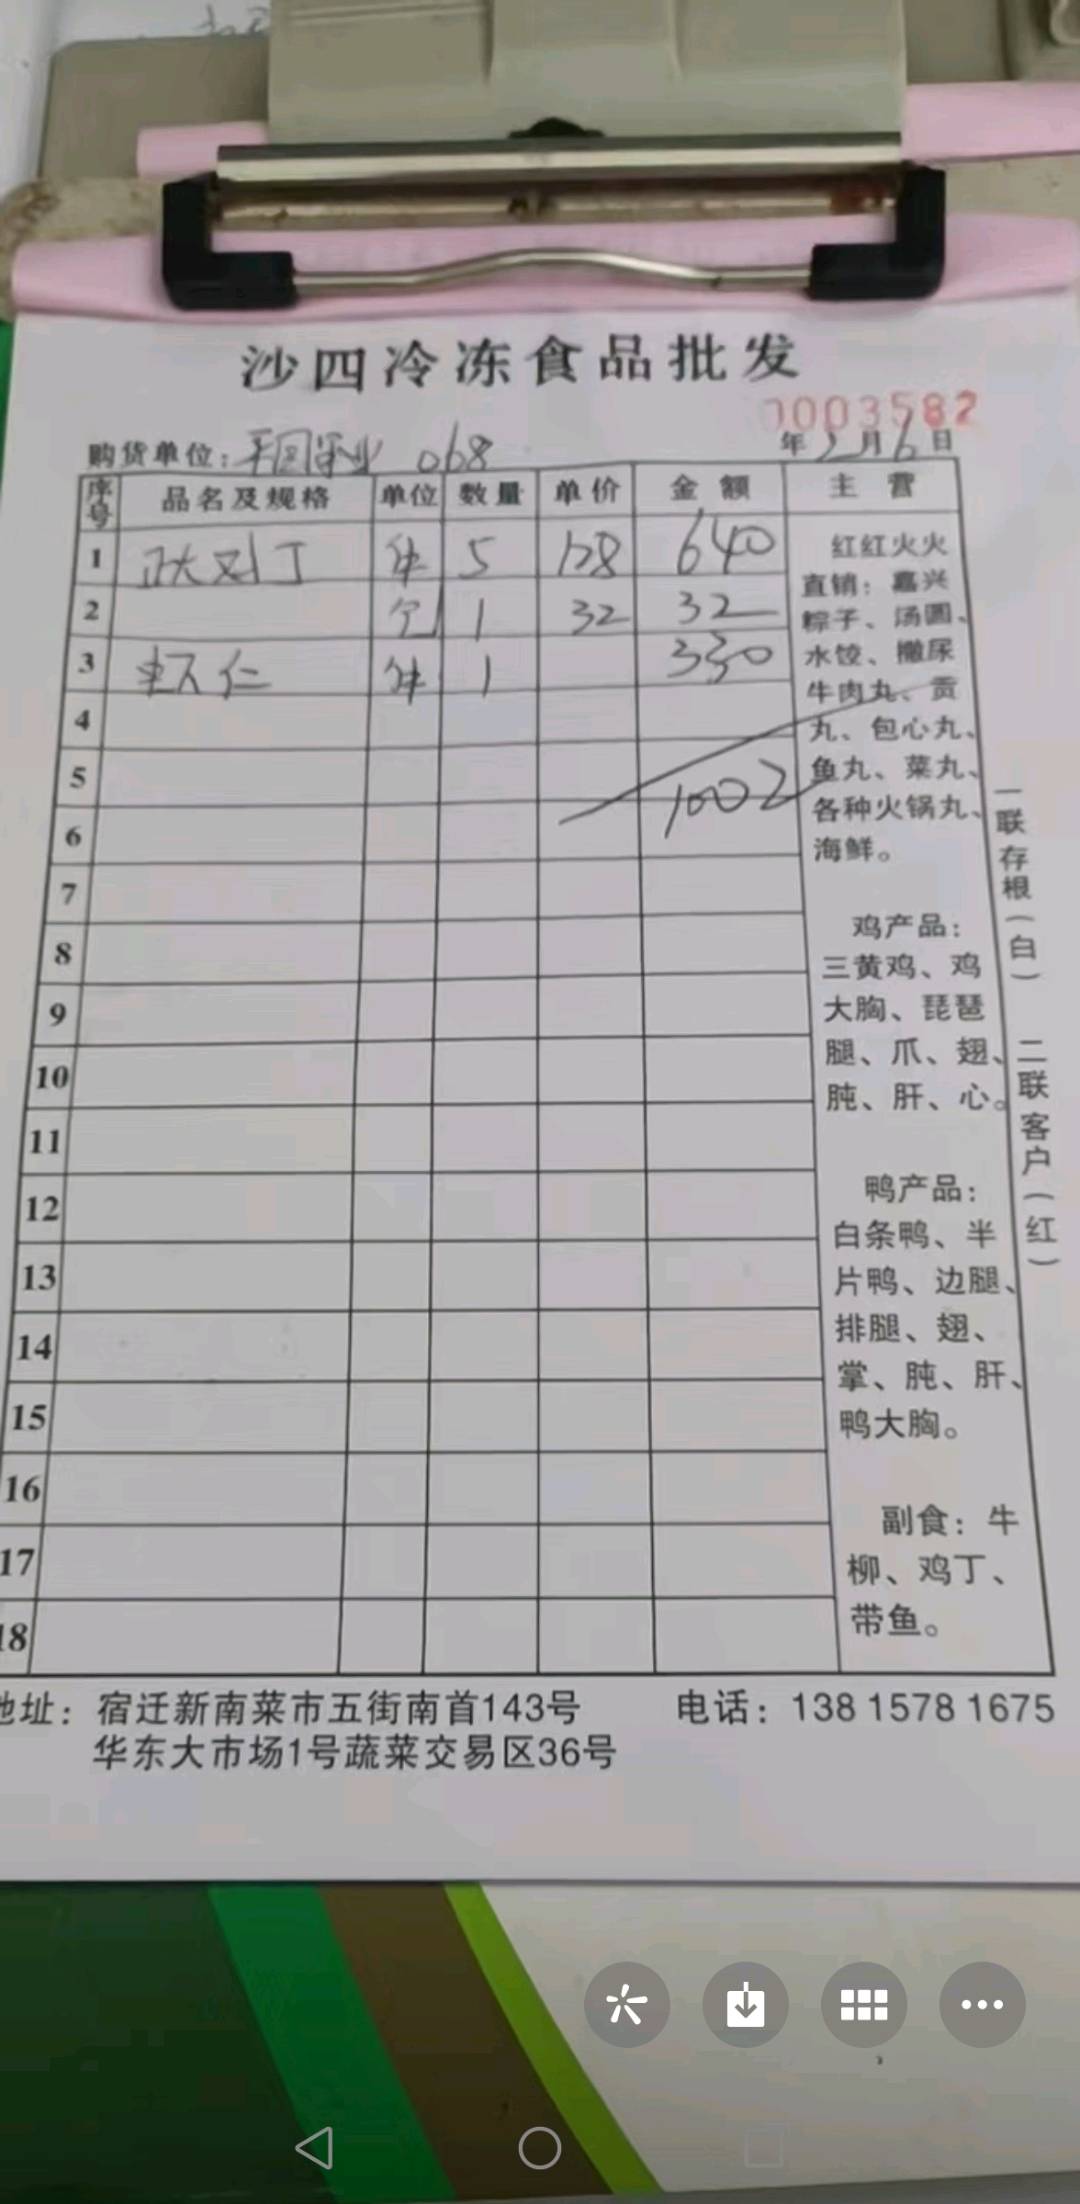 沙四冷冻食品批发
0003582
购货单位: 068 年2月6日
序号 品名及规格 单位 数量 单价 金额 主营
1 正大对丁 件 5 128 640
2 包 1 32 32
3 虾仁 件 1 330
4
5
6 1002
7
8
9
10
11
12
13
14
15
16
17
18
红红火火
直销：嘉兴
粽子、汤圆、
水饺、撒尿
牛肉丸、贡
丸、包心丸、
鱼丸、菜丸、
各种火锅丸、
海鲜。
鸡产品：
三黄鸡、鸡
大胸、琵琶
腿、爪、翅、
肫、肝、心。
鸭产品：
白条鸭、半
片鸭、边腿、
排腿、翅、
掌、肫、肝、
鸭大胸。
副食：牛
柳、鸡丁、
带鱼。
一联存根（白） 二联客户（红）
地址：宿迁新南菜市五街南首143号 电话：138 1578 1675
华东大市场1号蔬菜交易区36号